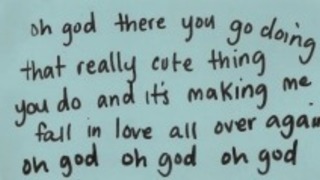 oh god there you go doing
that really cute thing
you do and it's making me
fall in love all over again
oh god oh god oh god